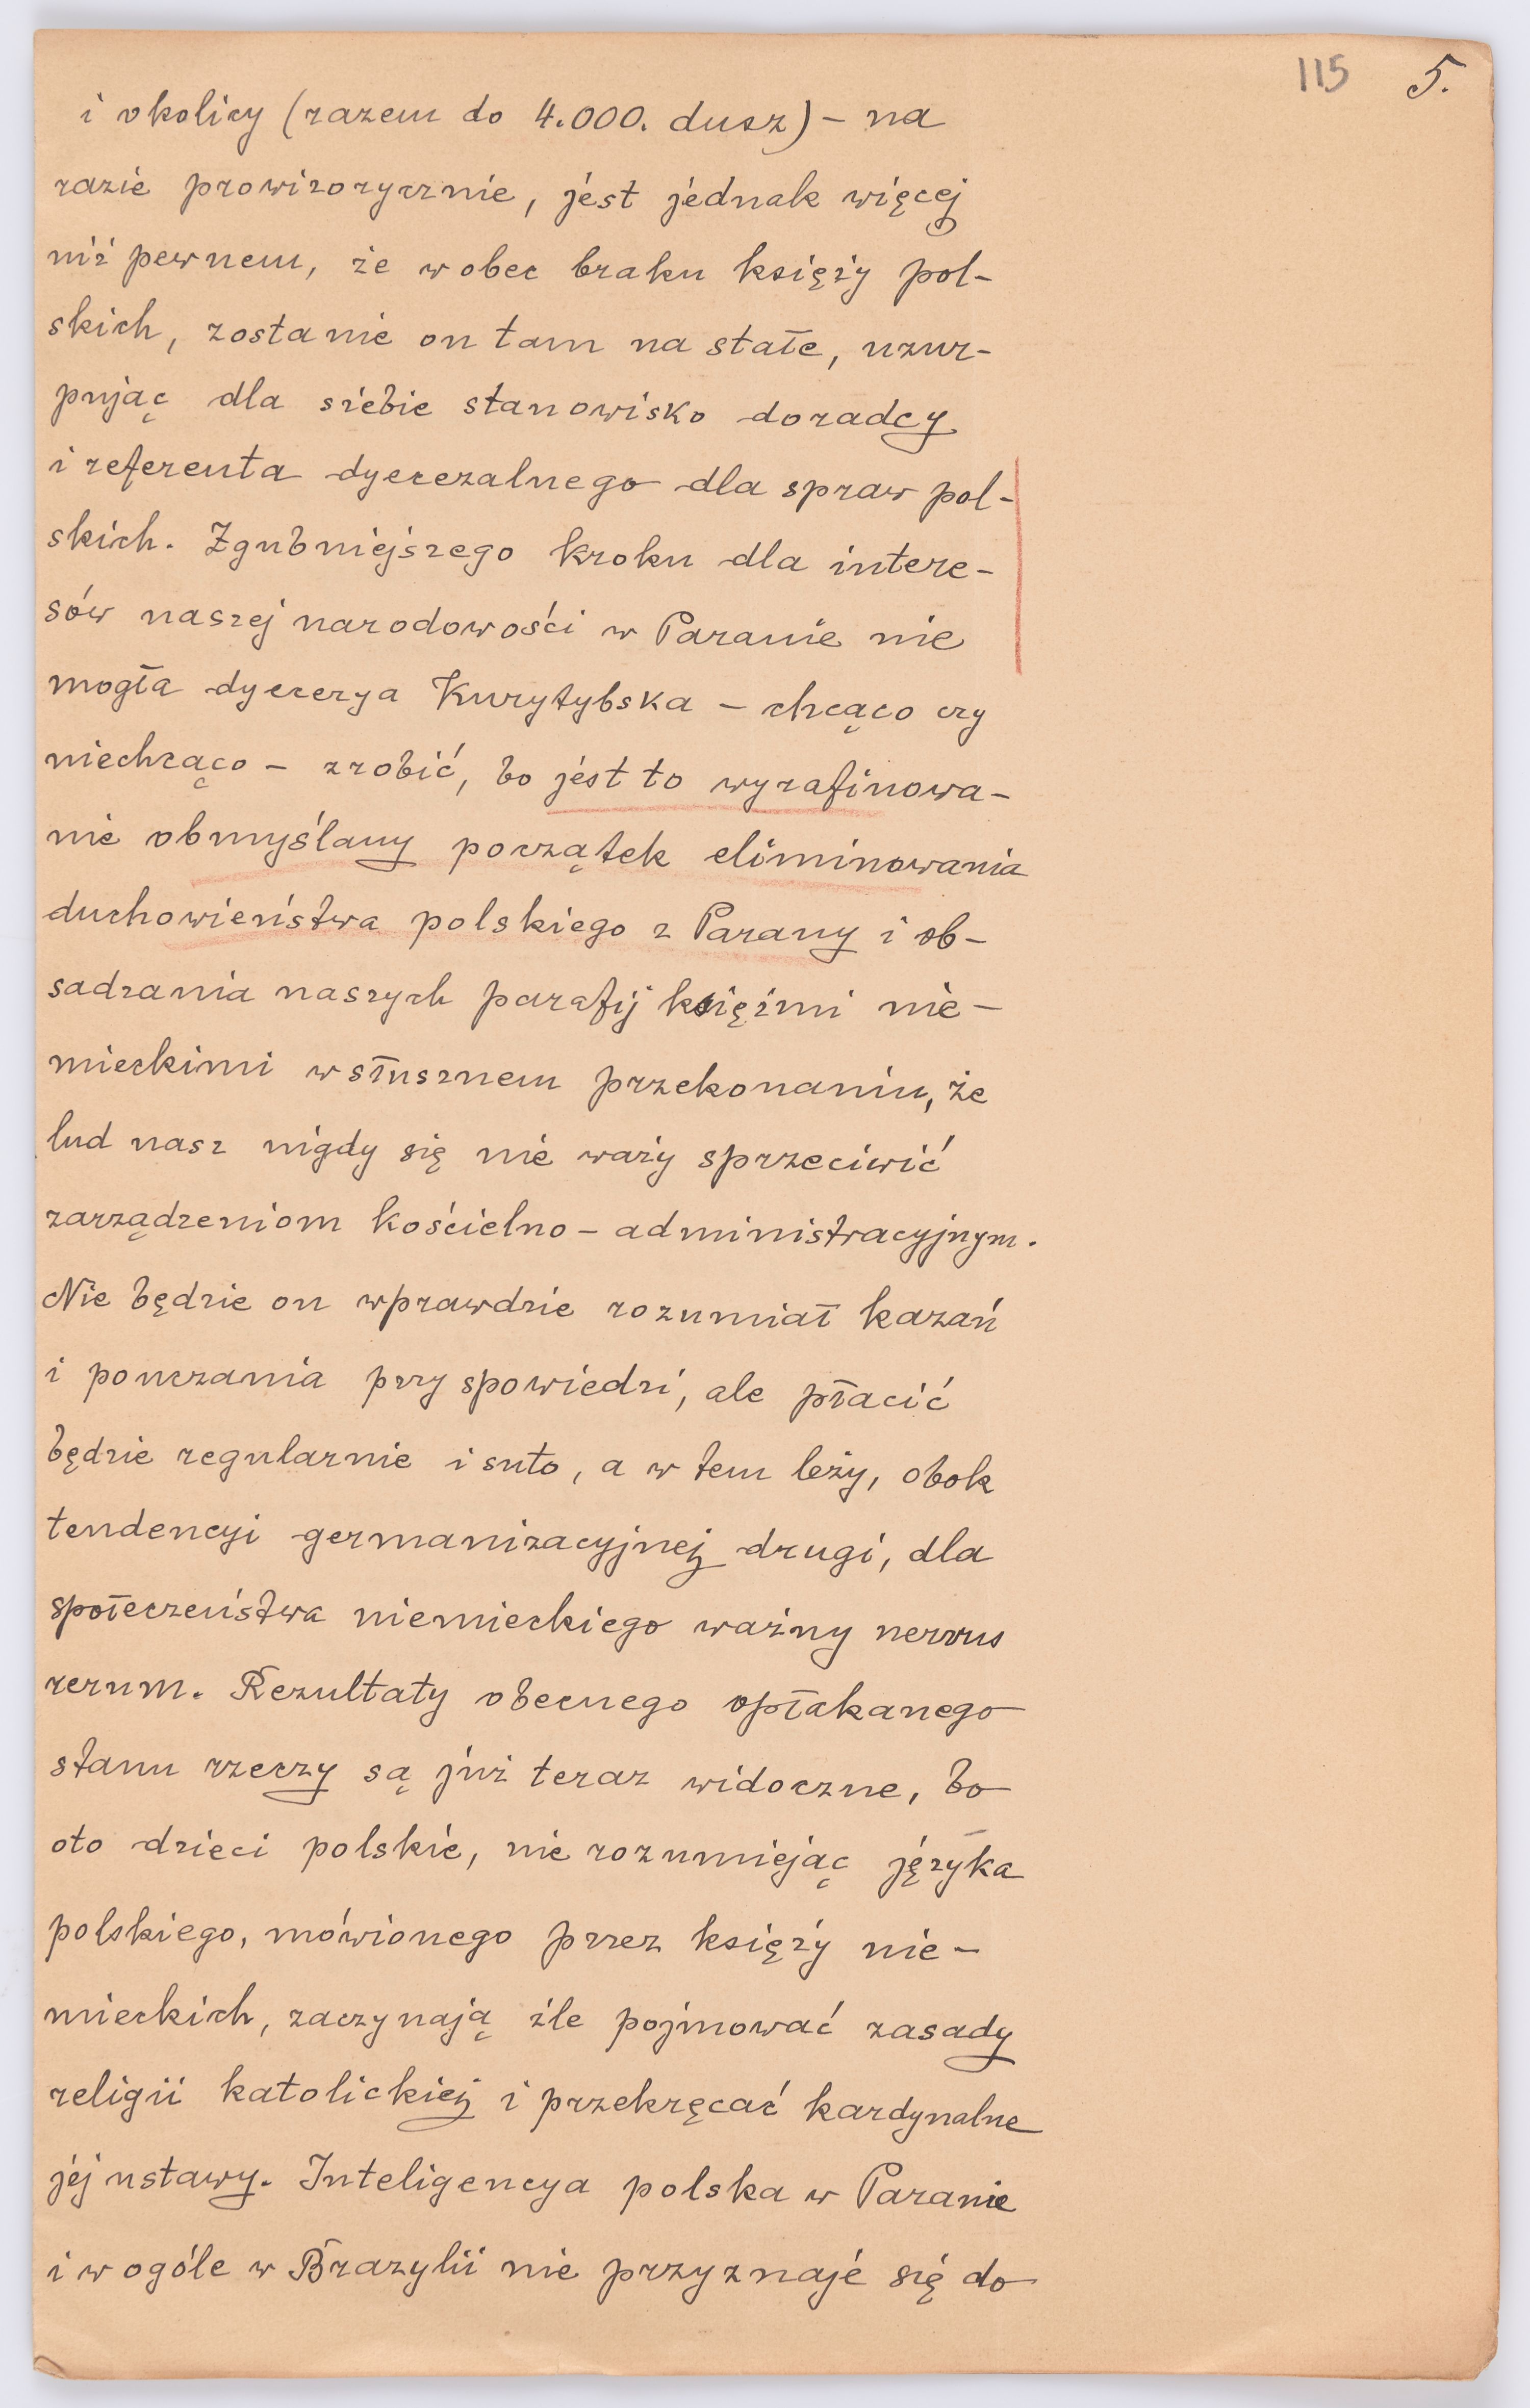 115 5.
i okolicy (razem do 4.000. dusz) – na
razie prowizorycznie, jest jednak więcej
niż pewnem, że wobec braku księży pol-
skich, zostanie on tam na stałe, uzur-
pując dla siebie stanowisko doradcy
i referenta dyecezalnego dla spraw pol-
skich. Zgubniejszego kroku dla intere-
sów naszej narodowości w Paranie nie
mogła dyecezya Kurytybska – chcąco czy
niechcąco – zrobić, bo jest to wyrafinowa-
nie obmyślany początek eliminowania
duchowieństwa polskiego z Parany i ob-
sadzania naszych parafij księżmi nie-
mieckimi w słusznem przekonaniu, że
lud nasz nigdy się nie waży sprzeciwić
zarządzeniom kościelno – administracyjnym.
Nie będzie on wprawdzie rozumiał kazań
i pouczania przy spowiedzi, ale płacić
będzie regularnie i suto, a w tem leży, obok
tendencyi germanizacyjnej drugi, dla
społeczeństwa niemieckiego ważny nervus
rerum. Rezultaty obecnego opłakanego
stanu rzeczy są już teraz widoczne, bo
oto dzieci polskie, nie rozumiejąc języka
polskiego, mówionego przez księży nie-
mieckich, zaczynają źle pojmować zasady
religii katolickiej i przekręcać kardynalne
jej ustawy. Inteligencya polska w Paranie
i w ogóle w Brazylii nie przyznaje się do